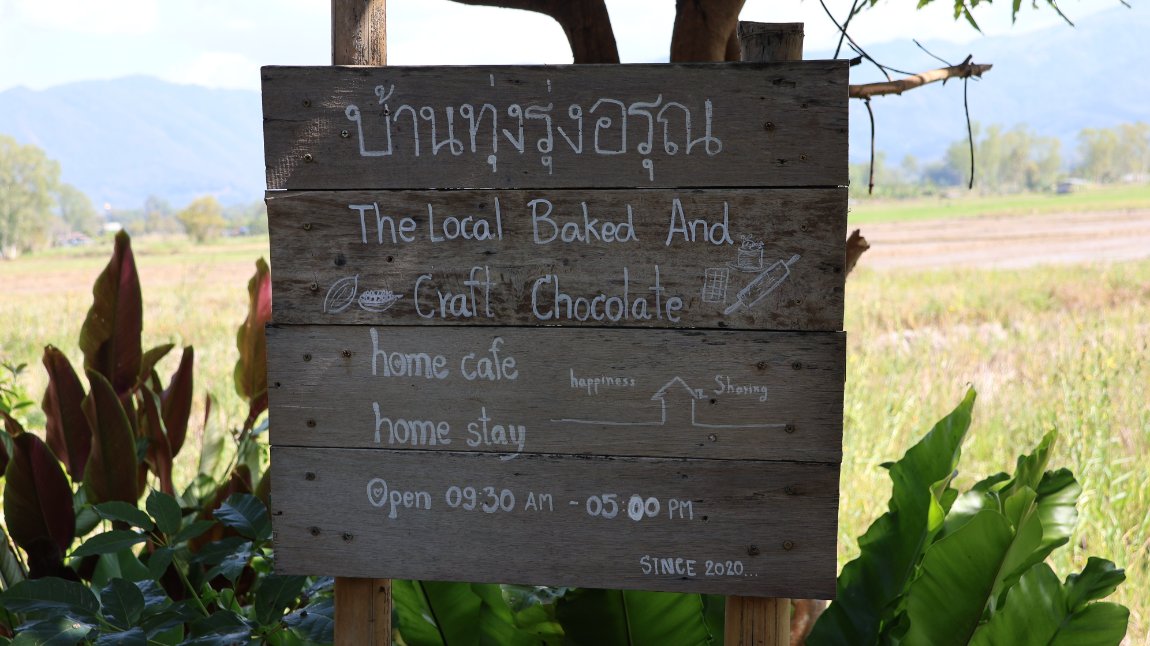 บ้านทุ่งรุ่งอรุณ
The Local Baked And
Craft Chocolate
home cafe
happiness Sharing
home stay
Open 09:30 AM - 05:00 PM
SINCE 2020...